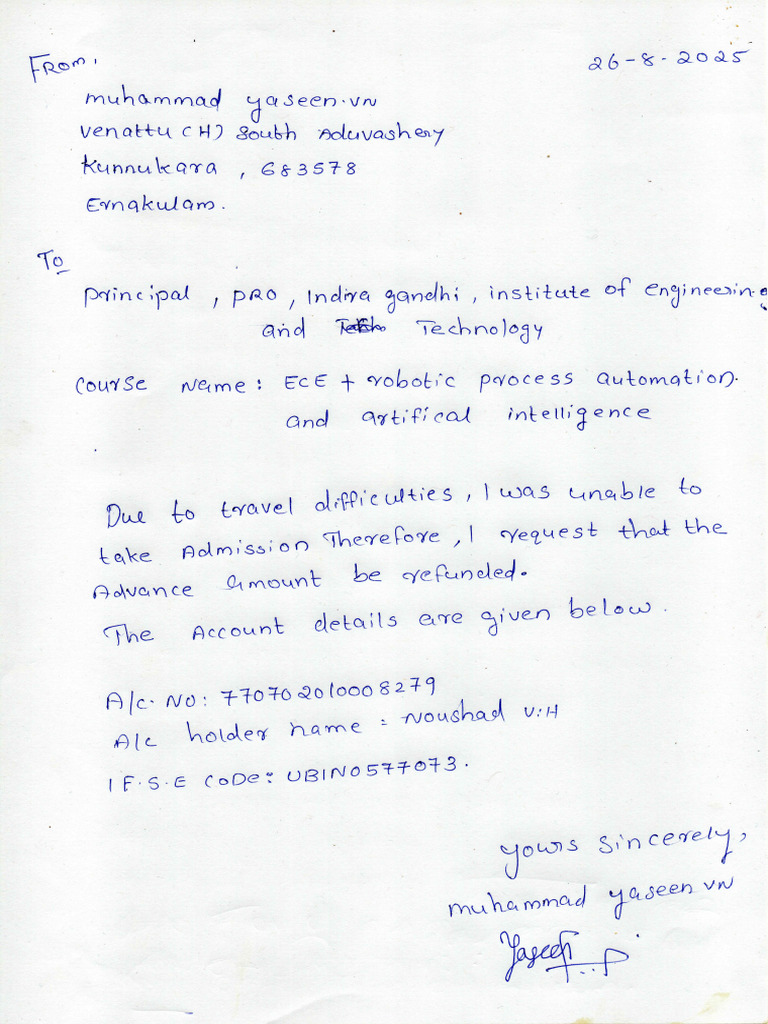 From,
26-8-2025
muhammad yaseen.VN
Venattu (H) South Aduvashery
Kunnukara, 683578
Ernakulam.
To
Principal, PRO, Indira gandhi, institute of engineering
and Technology
Course Name: ECE + robotic process automation.
and artifical intelligence
Due to travel difficulties, I was unable to
take Admission Therefore, I request that the
Advance amount be refunded.
The Account details are given below.
A/c. No: 770702010008279
A/c holder name : Noushad V.H
I F.S.E CODe: UBIN0577073.
yours sincerely,
muhammad yaseen VN
Yaseen